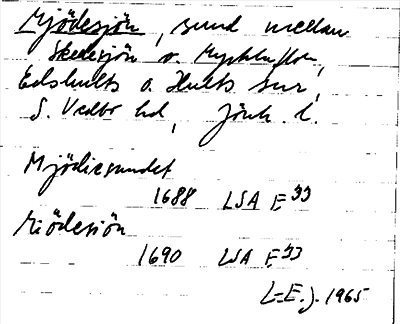 Mjödesjön, sund mellan
Skedesjön o.
Edshults o. Hults snr,
S. Vedbo hd, Jönk. l.
Mjödiesundet
1688 LSA E 33
Miödesjön
1690 LSA E 33
L-E. J. 1965